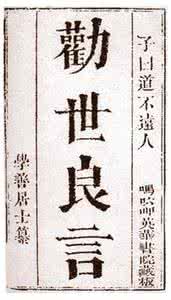 子曰道不遠人
嗎�َ呷英華書院藏板
勸世良言
學善居士纂